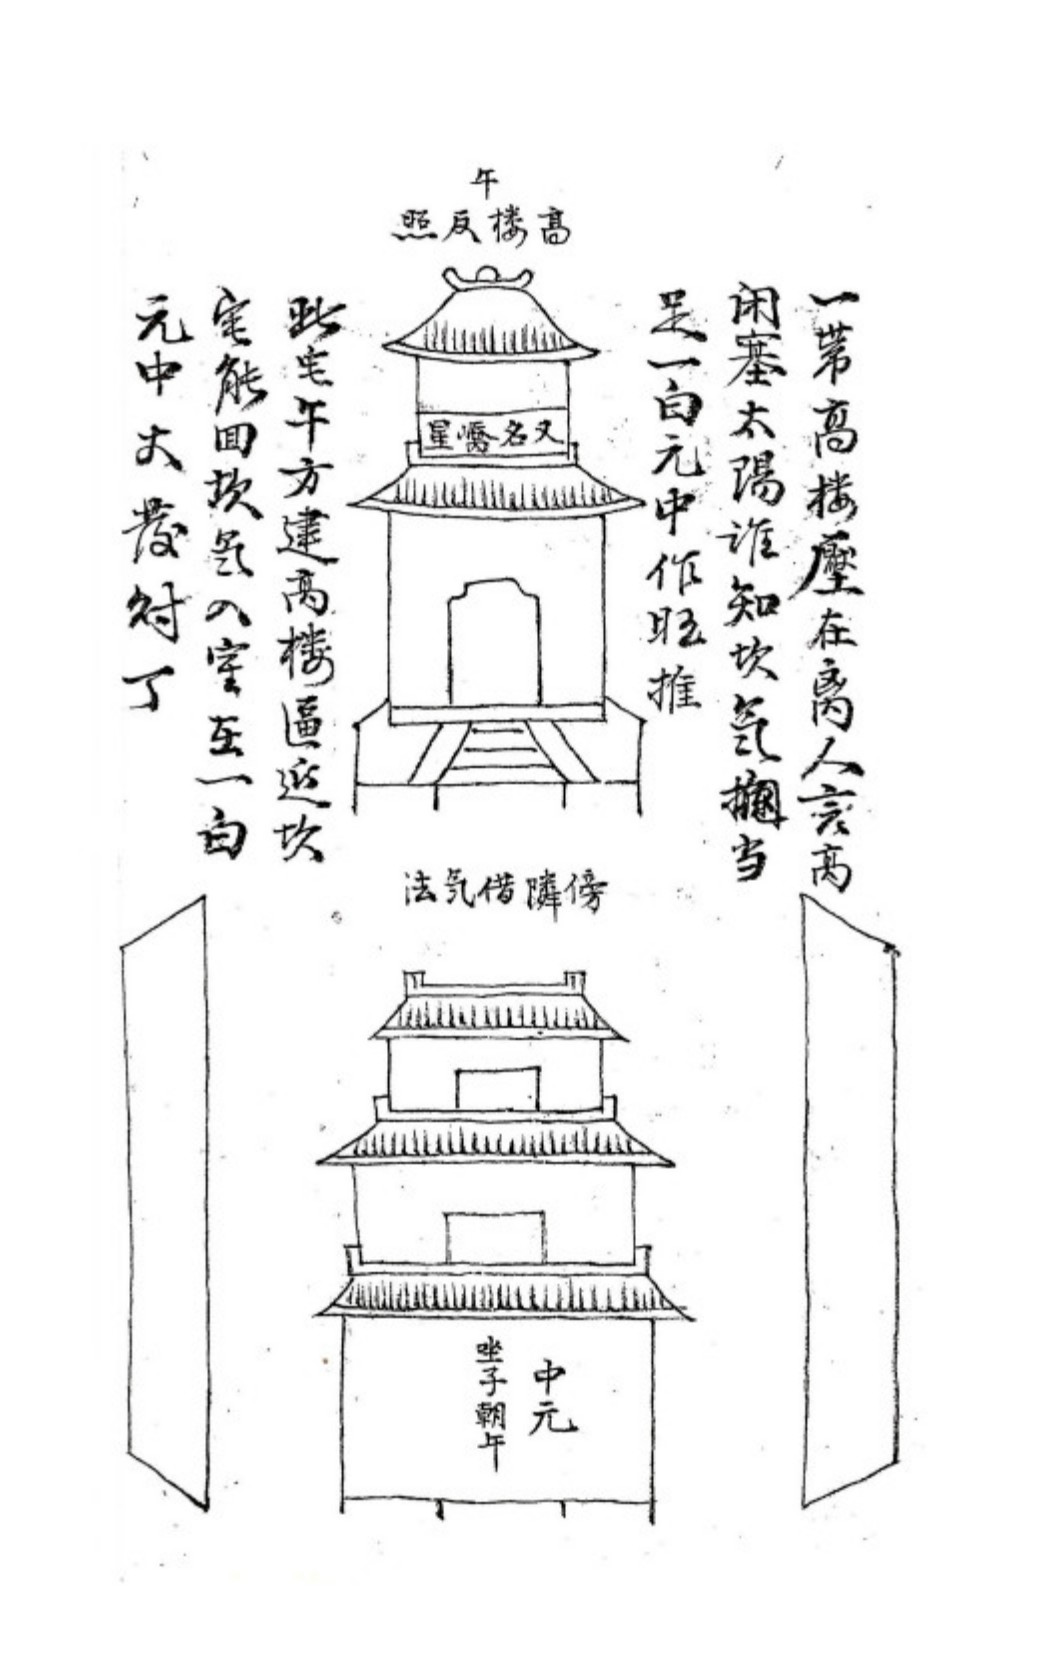 午
高楼反照
一带高楼壓在离人言高
闭塞太陽谁知坎氣当
足一白元中作旺推
又名嶠星
此宅午方建高楼逼坎
宅能回坎氣入室在一白
元中大發财丁
傍隣借気法
中元
坐子朝午